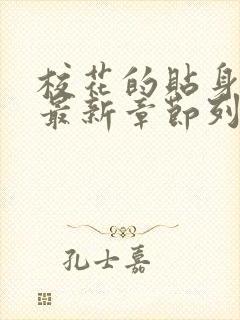 校花的贴身
最新章节列
孔士嘉